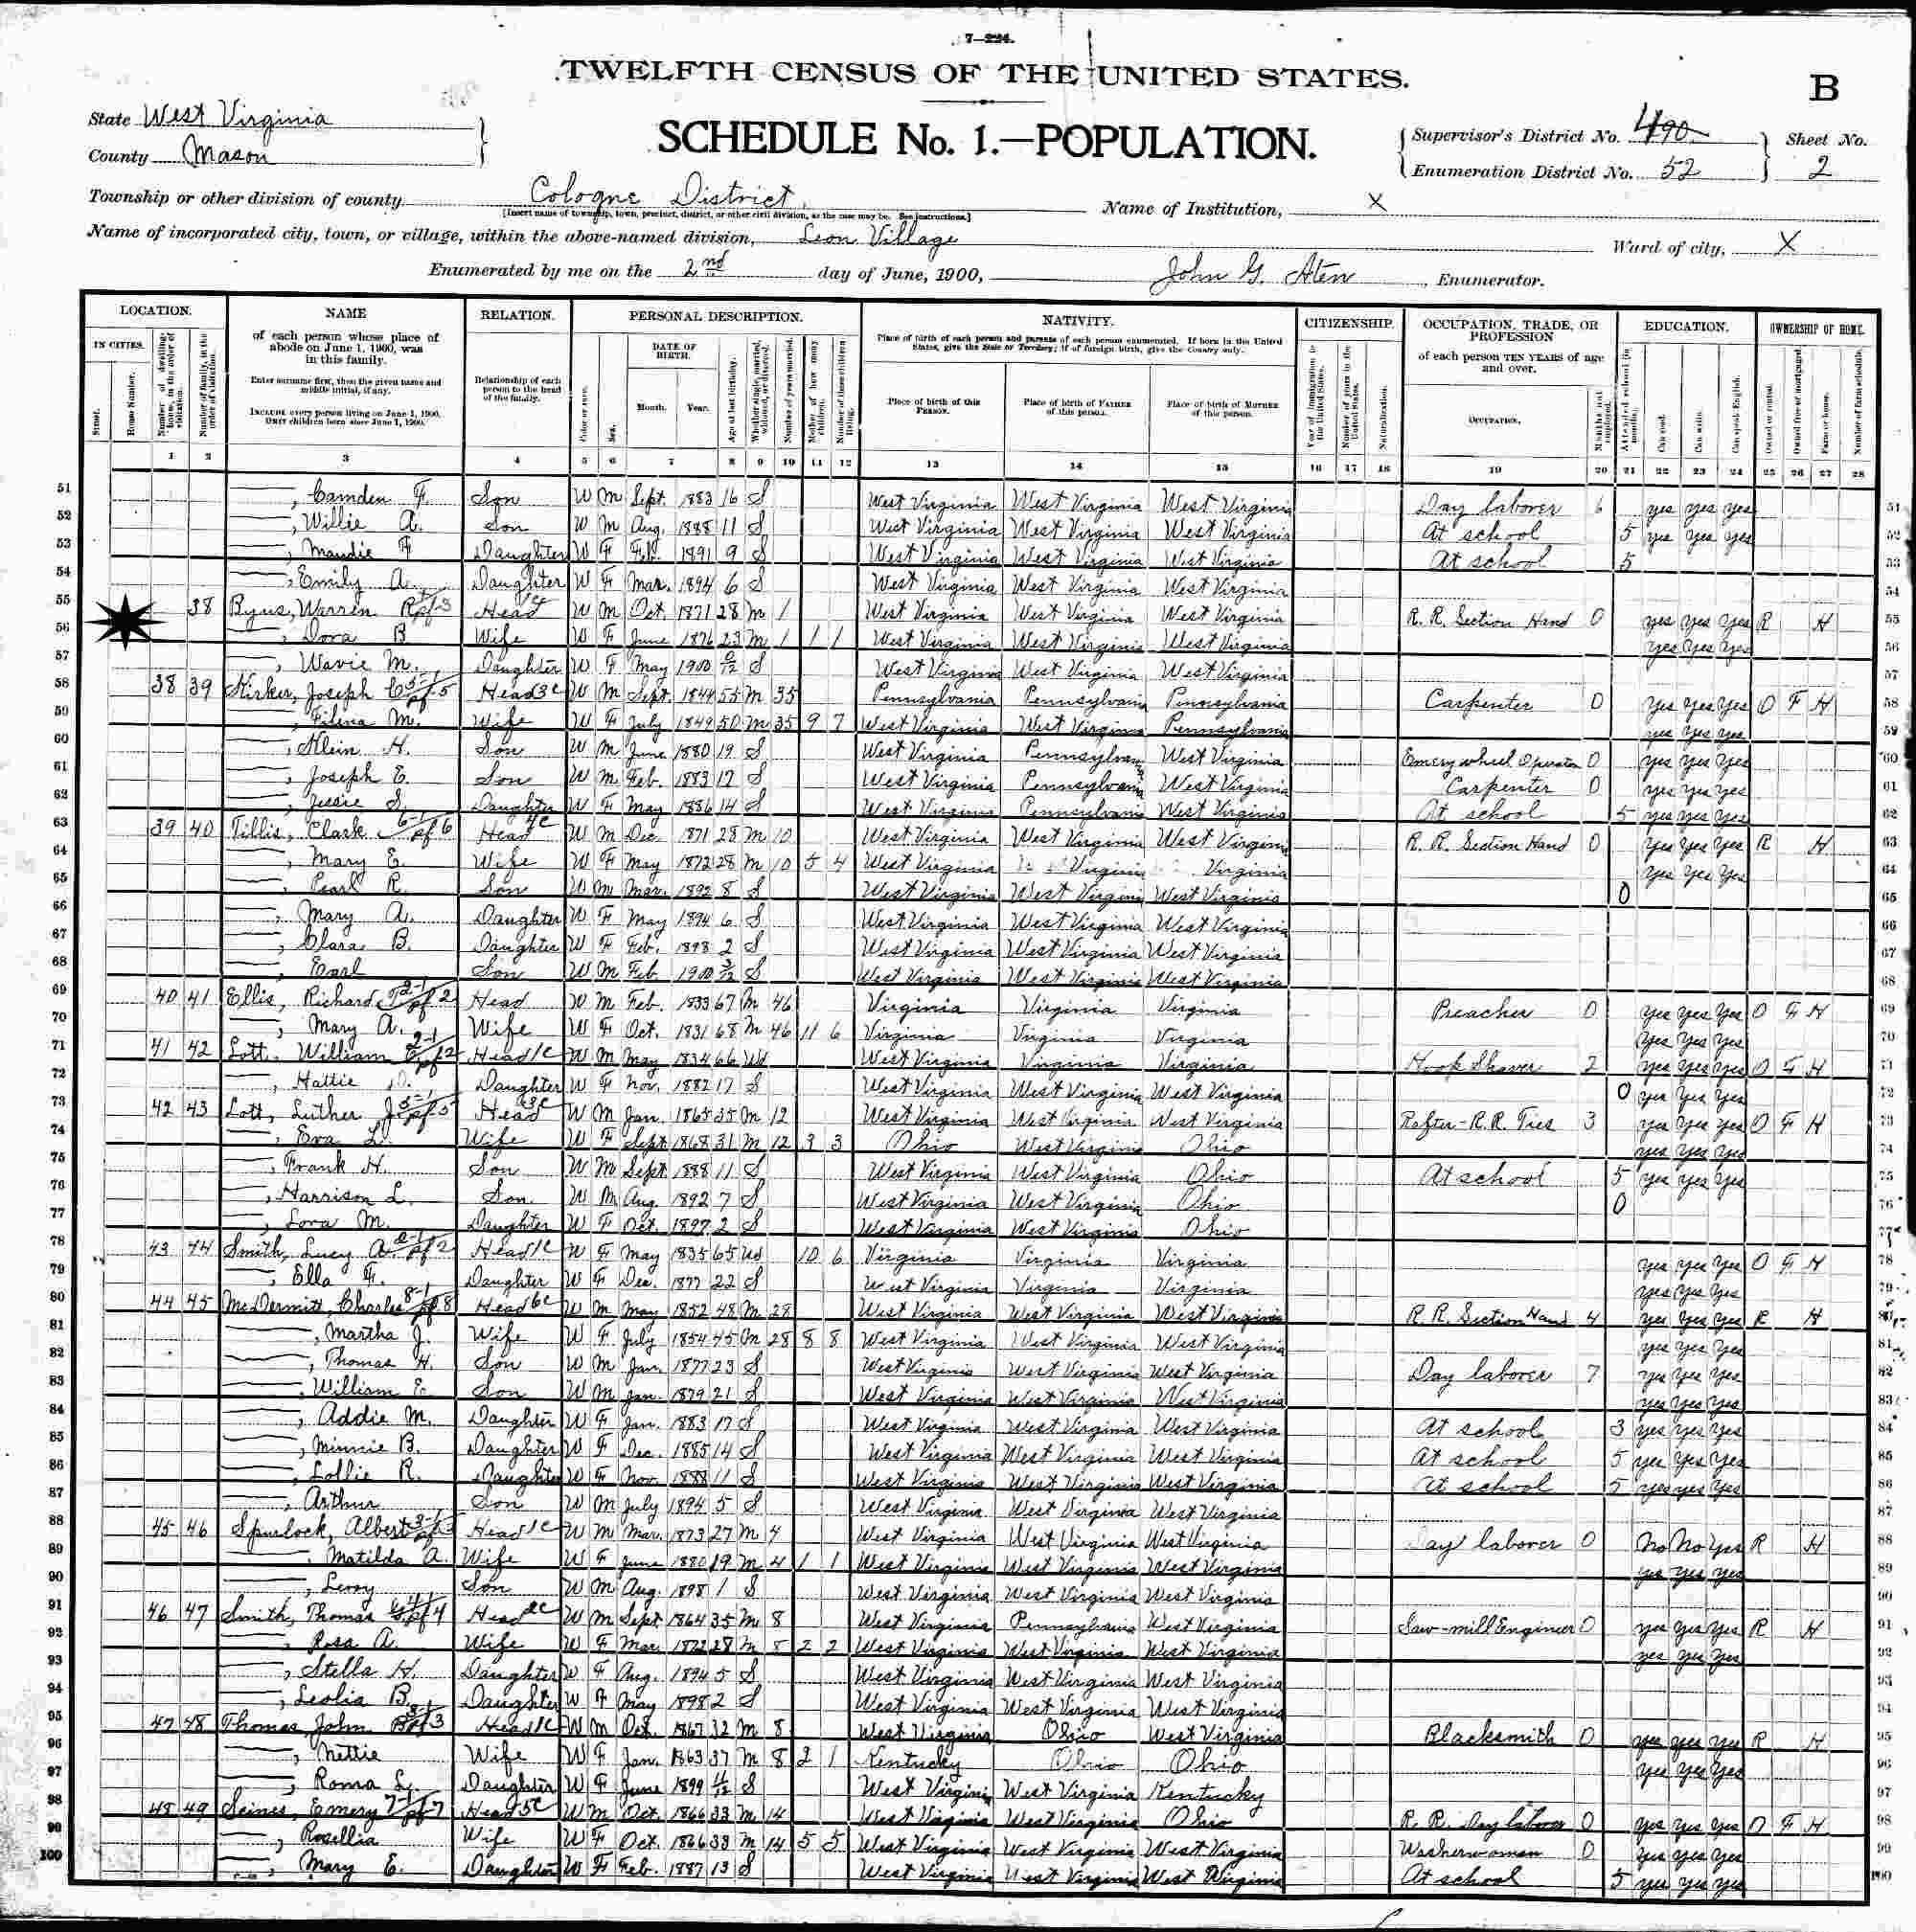 7—224.
TWELFTH CENSUS OF THE UNITED STATES.
B
State West Virginia
County Mason
SCHEDULE No. 1.—POPULATION.
Supervisor's District No. 490
Enumeration District No. 52
Sheet No. 2
Township or other division of county Cologne District
[Insert name of township, town, precinct, district, or other civil division, as the case may be. See instructions.]
Name of Institution, X
Name of incorporated city, town, or village, within the above-named division, Leon Village
Ward of city, X
Enumerated by me on the 2nd day of June, 1900, John G. Aten, Enumerator.
LOCATION. NAME RELATION. PERSONAL DESCRIPTION. NATIVITY. CITIZENSHIP. OCCUPATION, TRADE, OR PROFESSION EDUCATION. OWNERSHIP OF HOME.
IN CITIES. of each person whose place of abode on June 1, 1900, was in this family. DATE OF BIRTH. Place of birth of each person and parents of each person enumerated. If born in the United States, give the State or Territory; if of foreign birth, give the Country only. of each person TEN YEARS of age and over.
Enter surname first, then the given name and middle initial, if any. Relationship of each person to the head of the family. Month. Year. Place of birth of this PERSON. Place of birth of FATHER of this person. Place of birth of MOTHER of this person. OCCUPATION.
INCLUDE every person living on June 1, 1900. OMIT children born since June 1, 1900.
1 2 3 4 5 6 7 8 9 10 11 12 13 14 15 16 17 18 19 20 21 22 23 24 25 26 27 28
51 —, Camden F Son W M Sept. 1883 16 S West Virginia West Virginia West Virginia Day laborer 6 yes yes yes 51
52 —, Willie A. Son W M Aug. 1888 11 S West Virginia West Virginia West Virginia At school 5 yes yes yes 52
53 —, Maudie F Daughter W F Feb. 1891 9 S West Virginia West Virginia West Virginia At school 5 53
54 —, Emily A. Daughter W F Mar. 1894 6 S West Virginia West Virginia West Virginia 54
55 38 Byus, Warren Head W M Oct. 1871 28 M 1 West Virginia West Virginia West Virginia R. R. Section Hand 0 yes yes yes R H 55
56 —, Dora B Wife W F June 1876 23 M 1 1 1 West Virginia West Virginia West Virginia yes yes yes 56
57 —, Wavie M. Daughter W F May 1900 0/12 S West Virginia West Virginia West Virginia 57
58 38 39 Kirker, Joseph C Head W M Sept. 1844 55 M 35 Pennsylvania Pennsylvania Pennsylvania Carpenter 0 yes yes yes O F H 58
59 —, Filena M. Wife W F July 1849 50 M 35 9 7 West Virginia West Virginia Pennsylvania yes yes yes 59
60 —, H. Son W M June 1880 19 S West Virginia Pennsylvania West Virginia Emery wheel Operator 0 yes yes yes 60
61 —, Joseph E. Son W M Feb. 1883 17 S West Virginia Pennsylvania West Virginia Carpenter 0 yes yes yes 61
62 —, Jessie S. Daughter W F May 1886 14 S West Virginia Pennsylvania West Virginia At school 5 yes yes yes 62
63 39 40 Tillis, Clark Head W M Dec. 1871 28 M 10 West Virginia West Virginia West Virginia R. R. Section Hand 0 yes yes yes R H 63
64 —, Mary E. Wife W F May 1872 28 M 10 5 4 West Virginia Virginia Virginia yes yes yes 64
65 —, Pearl R. Son W M Mar. 1892 8 S West Virginia West Virginia West Virginia 0 65
66 —, Mary A. Daughter W F May 1894 6 S West Virginia West Virginia West Virginia 66
67 —, Clara B. Daughter W F Feb. 1898 2 S West Virginia West Virginia West Virginia 67
68 —, Earl Son W M Feb 1900 3/12 S West Virginia West Virginia West Virginia 68
69 40 41 Ellis, Richard Head W M Feb. 1833 67 M 46 Virginia Virginia Virginia Preacher 0 yes yes yes O F H 69
70 —, Mary A. Wife W F Oct. 1831 68 M 46 11 6 Virginia Virginia Virginia yes yes yes 70
71 41 42 Lott, William Head W M May 1834 66 Wd West Virginia Virginia Virginia Hoop Shaver 2 yes yes yes O F H 71
72 —, Hattie D. Daughter W F Nov. 1882 17 S West Virginia West Virginia West Virginia 0 yes yes yes 72
73 42 43 Lott, Luther J. Head W M Jan. 1865 35 M 12 West Virginia West Virginia West Virginia Rafter-R.R. Ties 3 yes yes yes O F H 73
74 —, Eva L. Wife W F Sept. 1868 31 M 12 3 3 Ohio West Virginia Ohio yes yes yes 74
75 —, Frank H. Son W M Sept 1888 11 S West Virginia West Virginia Ohio At school 5 yes yes yes 75
76 —, Harrison L. Son W M Aug. 1892 7 S West Virginia West Virginia Ohio 0 76
77 —, Lora M. Daughter W F Oct. 1897 2 S West Virginia West Virginia Ohio 77
78 43 44 Smith, Lucy A. Head W F May 1835 65 Wd 10 6 Virginia Virginia Virginia yes yes yes O F H 78
79 —, Ella F. Daughter W F Dec. 1877 22 S West Virginia Virginia Virginia yes yes yes 79
80 44 45 McDermitt, Charles Head W M May 1852 48 M 28 West Virginia West Virginia West Virginia R. R. Section Hand 4 yes yes yes R H 80
81 —, Martha J. Wife W F July 1854 45 M 28 8 8 West Virginia West Virginia West Virginia yes yes yes 81
82 —, Thomas H. Son W M Jan. 1877 23 S West Virginia West Virginia West Virginia Day laborer 7 yes yes yes 82
83 —, William E. Son W M Jan. 1879 21 S West Virginia West Virginia West Virginia yes yes yes 83
84 —, Addie M. Daughter W F Jan. 1883 17 S West Virginia West Virginia West Virginia At school 3 yes yes yes 84
85 —, Minnie B. Daughter W F Dec. 1885 14 S West Virginia West Virginia West Virginia At school 5 yes yes yes 85
86 —, Lollie R. Daughter W F Nov. 1888 11 S West Virginia West Virginia West Virginia At school 5 yes yes yes 86
87 —, Arthur Son W M July 1894 5 S West Virginia West Virginia West Virginia 87
88 45 46 Spurlock, Albert Head W M Mar. 1873 27 M 4 West Virginia West Virginia West Virginia Day laborer 0 No No Yes R H 88
89 —, Matilda A. Wife W F June 1880 19 M 4 1 1 West Virginia West Virginia West Virginia yes yes yes 89
90 —, Leroy Son W M Aug. 1898 1 S West Virginia West Virginia West Virginia 90
91 46 47 Smith, Thomas Head W M Sept 1864 35 M 8 West Virginia Pennsylvania West Virginia Saw-mill Engineer 0 yes yes yes R H 91
92 —, Rosa A. Wife W F Mar. 1872 28 M 8 2 2 West Virginia West Virginia West Virginia yes yes yes 92
93 —, Stella H. Daughter W F Aug. 1894 5 S West Virginia West Virginia West Virginia 93
94 —, Leolia B. Daughter W F May 1898 2 S West Virginia West Virginia West Virginia 94
95 47 48 Thomas, John Head W M Oct. 1867 32 M 8 West Virginia Ohio West Virginia Blacksmith 0 yes yes yes R H 95
96 —, Nettie Wife W F Jan. 1863 37 M 8 2 1 Kentucky Ohio Ohio yes yes yes 96
97 —, Roma L. Daughter W F June 1899 11/12 S West Virginia West Virginia Kentucky 97
98 48 49 Seines, Emery Head W M Oct. 1866 33 M 14 West Virginia West Virginia Ohio R. R. Day laborer 0 yes yes yes O F H 98
99 —, Rosellia Wife W F Oct. 1866 33 M 14 5 5 West Virginia West Virginia West Virginia Washerwoman 0 yes yes yes 99
100 —, Mary E. Daughter W F Feb. 1887 13 S West Virginia West Virginia West Virginia At school 5 yes yes yes 100